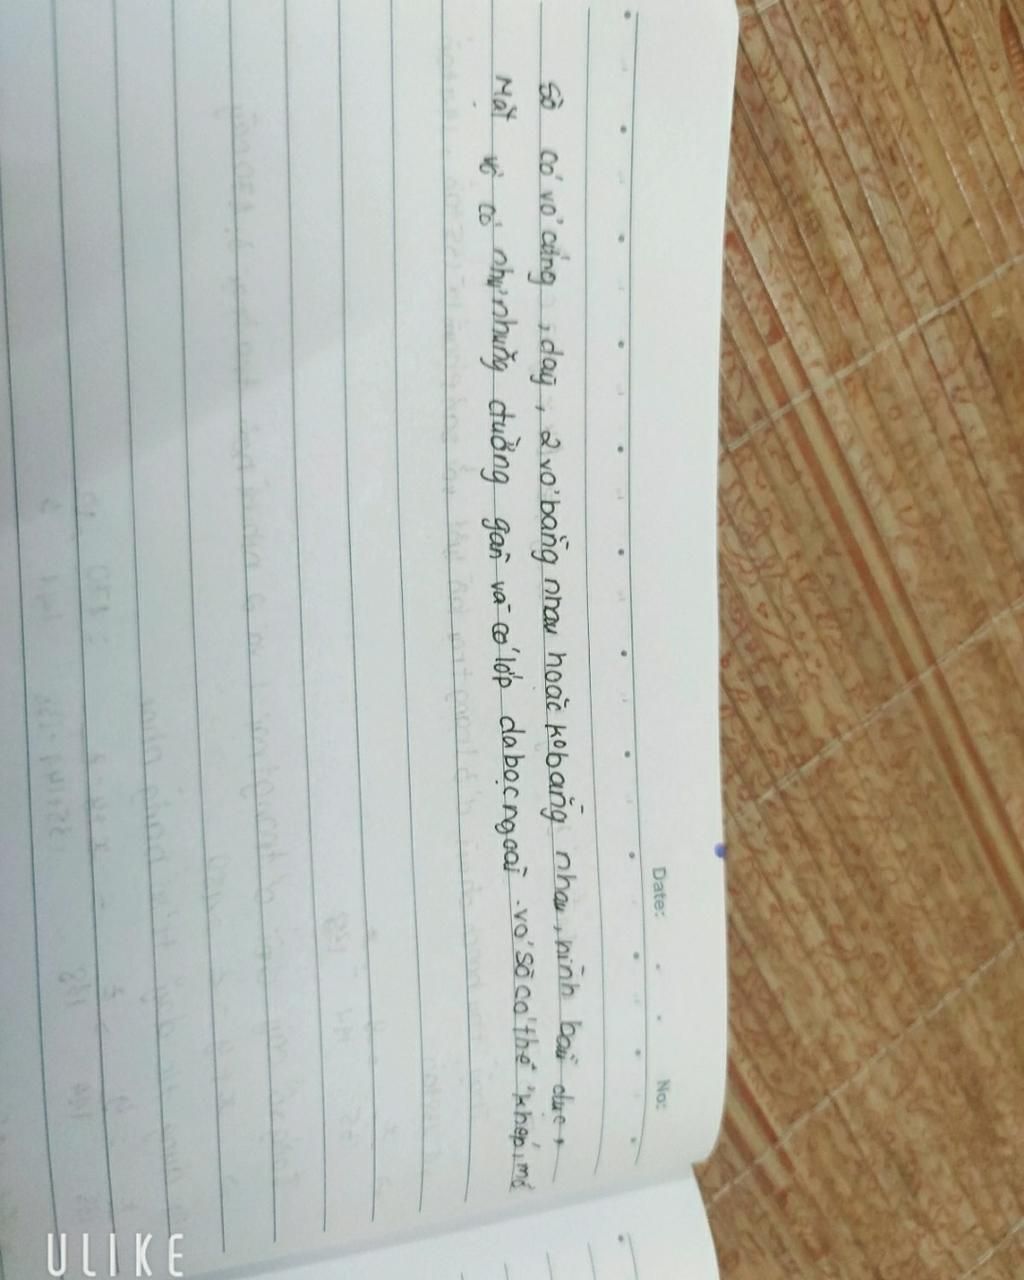 Date: No:
Sò có vỏ cứng, dày, 2 vỏ bằng nhau hoặc ko bằng nhau, hình bầu dục,
Mặt vỏ có như những đường gân và có lớp da bọc ngoài. vỏ sò có thể khép, mở
ULIKE